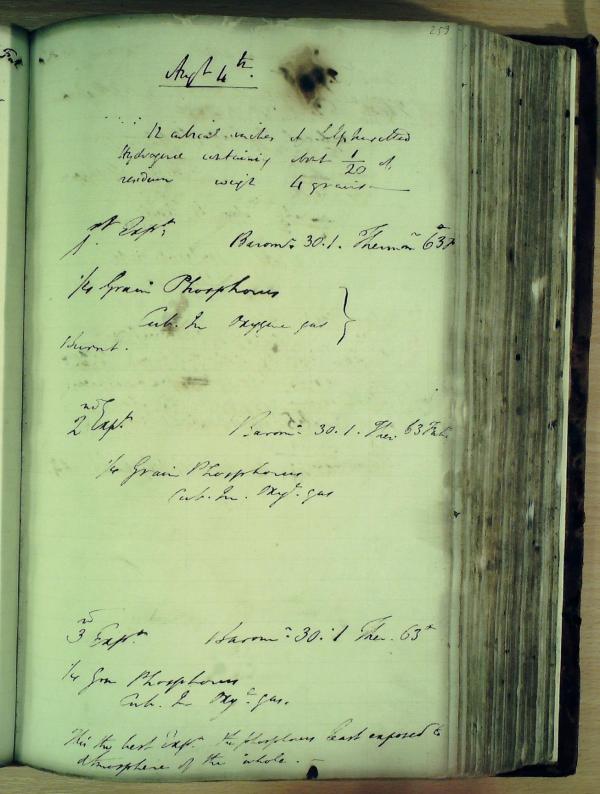 253
Augt 4th.
12 cubical inches of Sulphuretted
Hydrogene containing about 1/20 of
residuum weigh 4 grains
1st Expt. Baromr 30.1. Thermomr 63
1/4 Grain Phosphorus
Cub. In Oxygene gas
burnt.
2nd Expt Baromr 30.1. Ther. 63 Faht.
1/4 Grain Phosphorus
Cub. In. Oxyn. gas
3rd Expt. Baromr 30.1 Ther. 63
1/4 Grn Phosphorus
Cub. In Oxyn gas.
This the best Expt. the phosphorus least exposed to
atmosphere of the whole. –